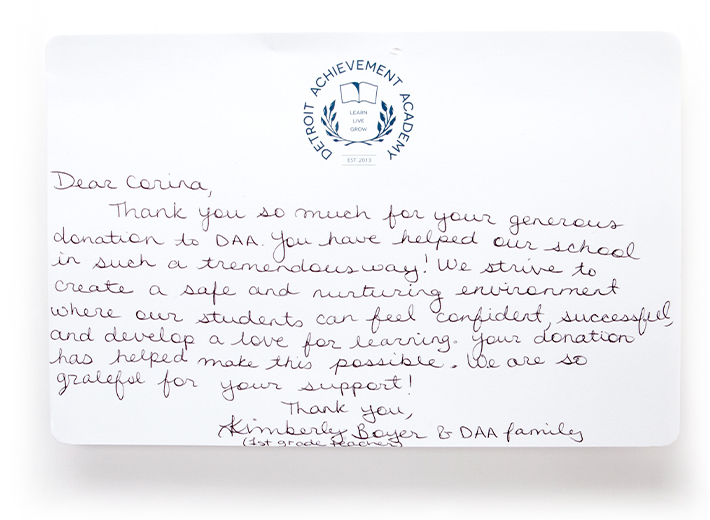 DETROIT ACHIEVEMENT ACADEMY
LEARN
LIVE
GROW
EST. 2013
Dear Corina,
Thank you so much for your generous
donation to DAA. You have helped our school
in such a tremendous way! We strive to
create a safe and nurturing environment
where our students can feel confident, successful,
and develop a love for learning. Your donation
has helped make this possible. We are so
grateful for your support!
Thank you,
Kimberly Boyer & DAA family
(1st grade teacher)